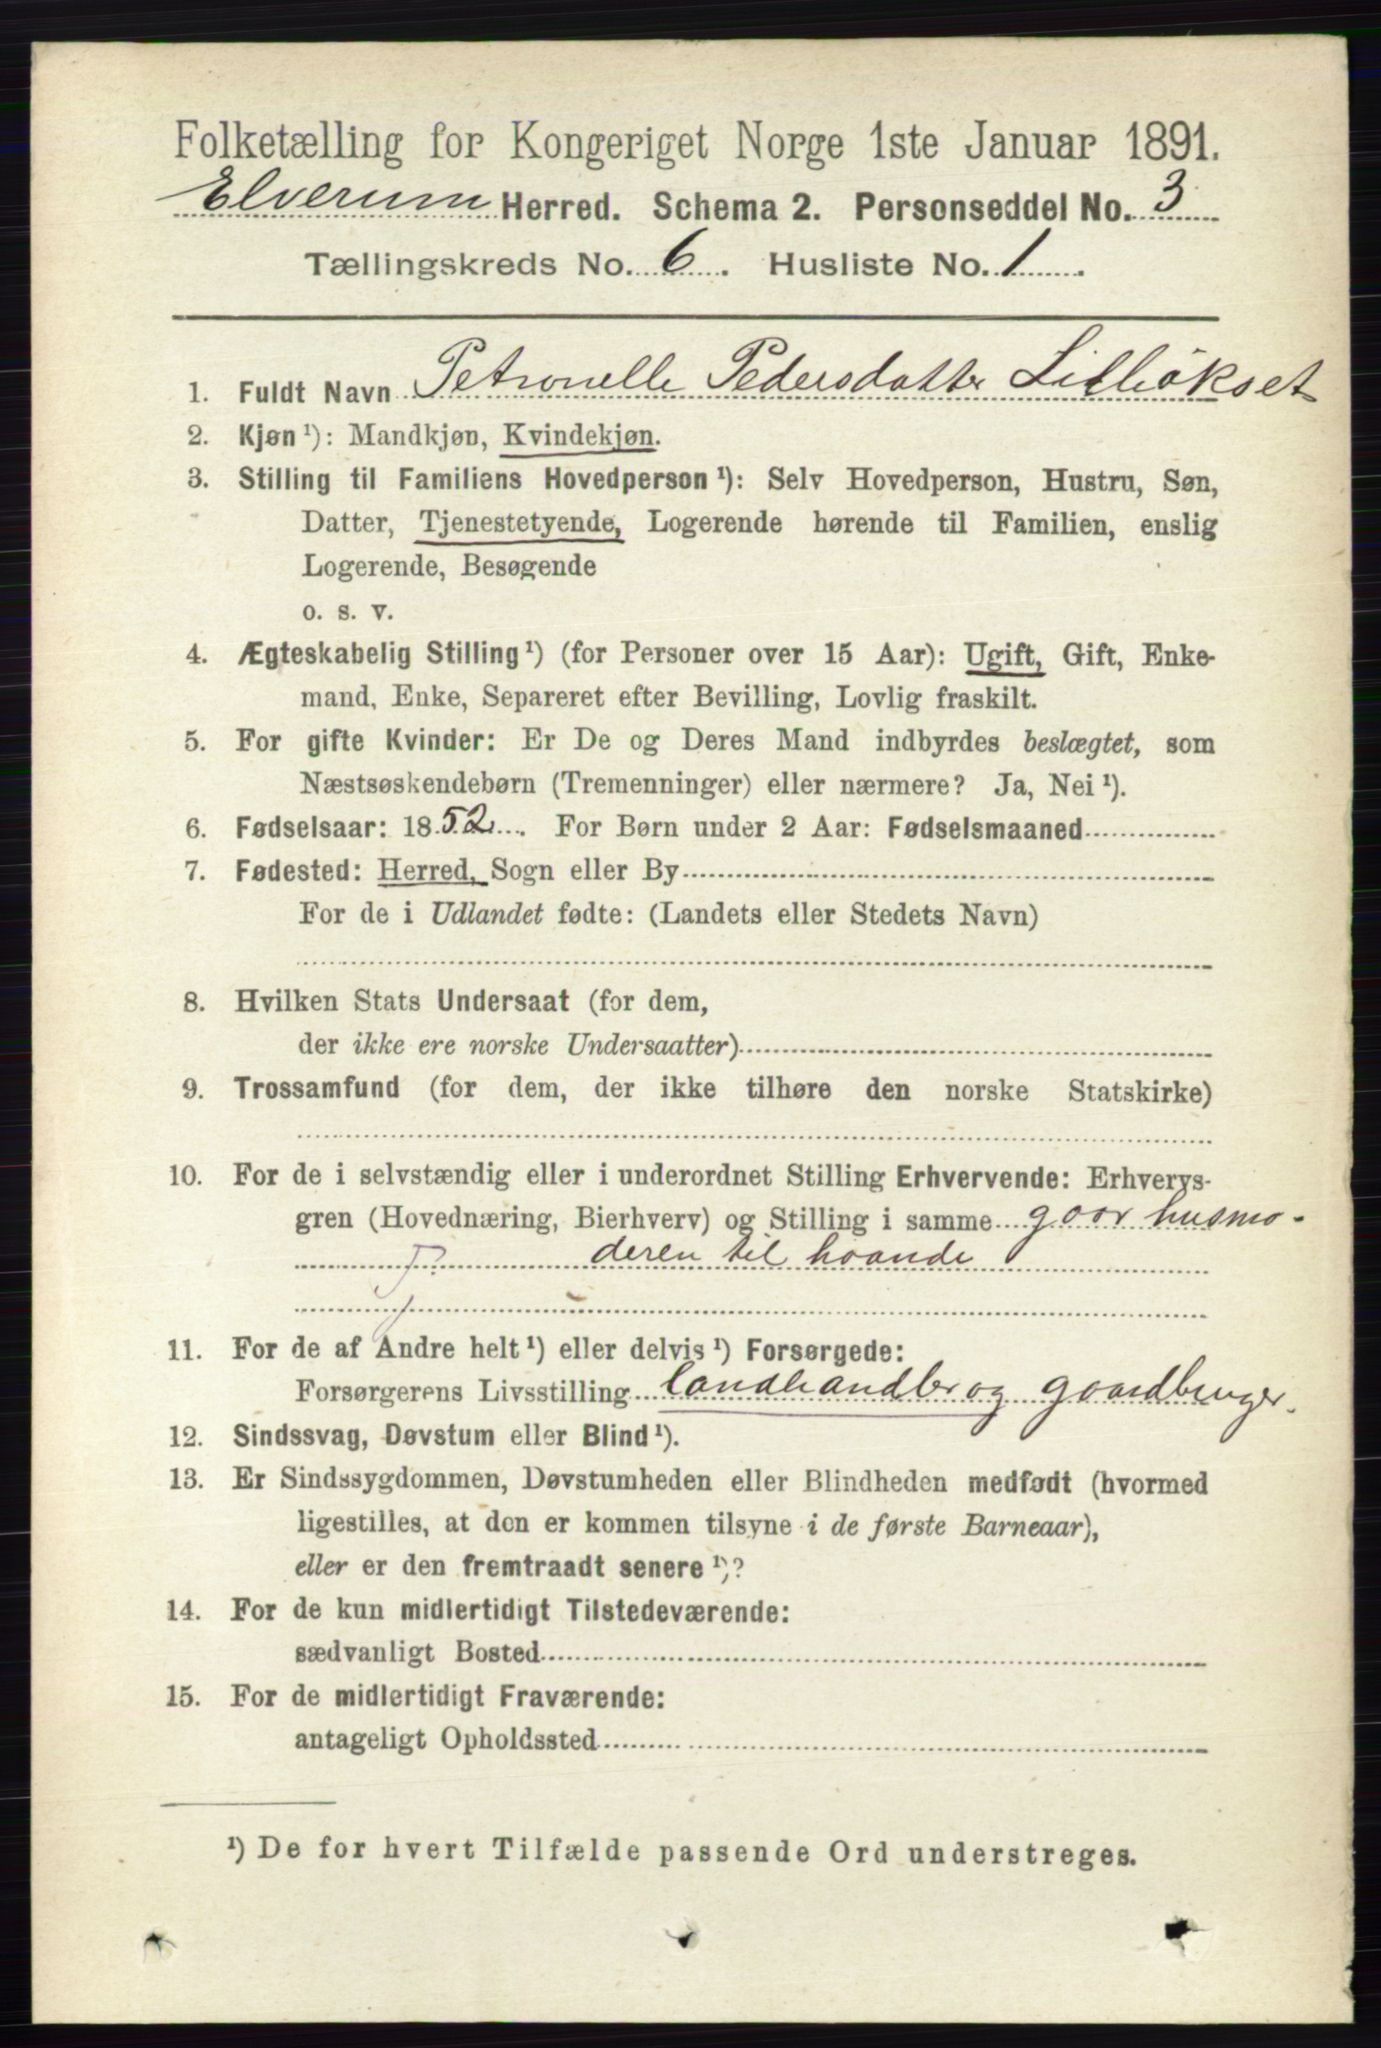 Folketælling for Kongeriget Norge 1ste Januar 1891.
Elverum Herred. Schema 2. Personseddel No. 3
Tællingskreds No. 6. Husliste No. 1.
1. Fuldt Navn Petronelle Pedersdatter Lilleökset
2. Kjøn ¹): Mandkjøn, Kvindekjøn.
3. Stilling til Familiens Hovedperson ¹): Selv Hovedperson, Hustru, Søn,
Datter, Tjenestetyende, Logerende hørende til Familien, enslig
Logerende, Besøgende
o. s. v.
4. Ægteskabelig Stilling ¹) (for Personer over 15 Aar): Ugift, Gift, Enke-
mand, Enke, Separeret efter Bevilling, Lovlig fraskilt.
5. For gifte Kvinder: Er De og Deres Mand indbyrdes beslægtet, som
Næstsøskendebørn (Tremenninger) eller nærmere? Ja, Nei ¹).
6. Fødselsaar: 1852. For Børn under 2 Aar: Fødselsmaaned
7. Fødested: Herred, Sogn eller By
For de i Udlandet fødte: (Landets eller Stedets Navn)
8. Hvilken Stats Undersaat (for dem,
der ikke ere norske Undersaatter)
9. Trossamfund (for dem, der ikke tilhøre den norske Statskirke)
10. For de i selvstændig eller i underordnet Stilling Erhvervende: Erhvervs-
gren (Hovednæring, Bierhverv) og Stilling i samme gaar husmo-
deren til haande
11. For de af Andre helt ¹) eller delvis ¹) Forsørgede:
Forsørgerens Livsstilling landhandler og gaardbruger.
12. Sindssvag, Døvstum eller Blind ¹).
13. Er Sindssygdommen, Døvstumheden eller Blindheden medfødt (hvormed
ligestilles, at den er kommen tilsyne i de første Barneaar),
eller er den fremtraadt senere ¹)?
14. For de kun midlertidigt Tilstedeværende:
sædvanligt Bosted
15. For de midlertidigt Fraværende:
antageligt Opholdssted
¹) De for hvert Tilfælde passende Ord understreges.